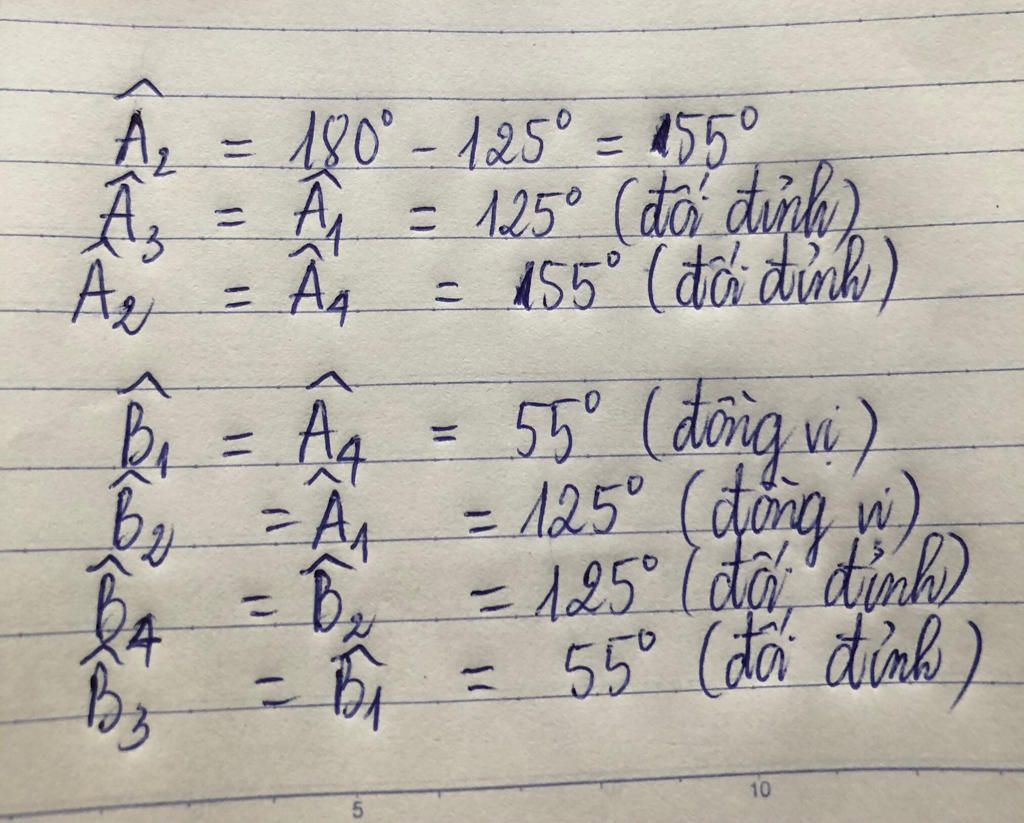 Â₂ = 180° - 125° = 155°
Â₃ = Â₁ = 125° (đối đỉnh)
Â₂ = Â₄ = 155° (đối đỉnh)
B̂₁ = Â₄ = 55° (đồng vị)
B̂₂ = Â₁ = 125° (đồng vị)
B̂₄ = B̂₂ = 125° (đối đỉnh)
B̂₃ = B̂₁ = 55° (đối đỉnh)
5 10